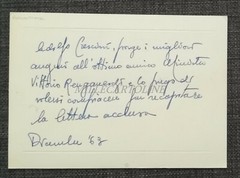 Adolfo Cassini, porge i migliori
auguri all'ottimo amico
Vittorio e lo prega di
volersi compiacere far recapitare
la lettera acclusa
Dicembre '63
MILLECARTOLINE